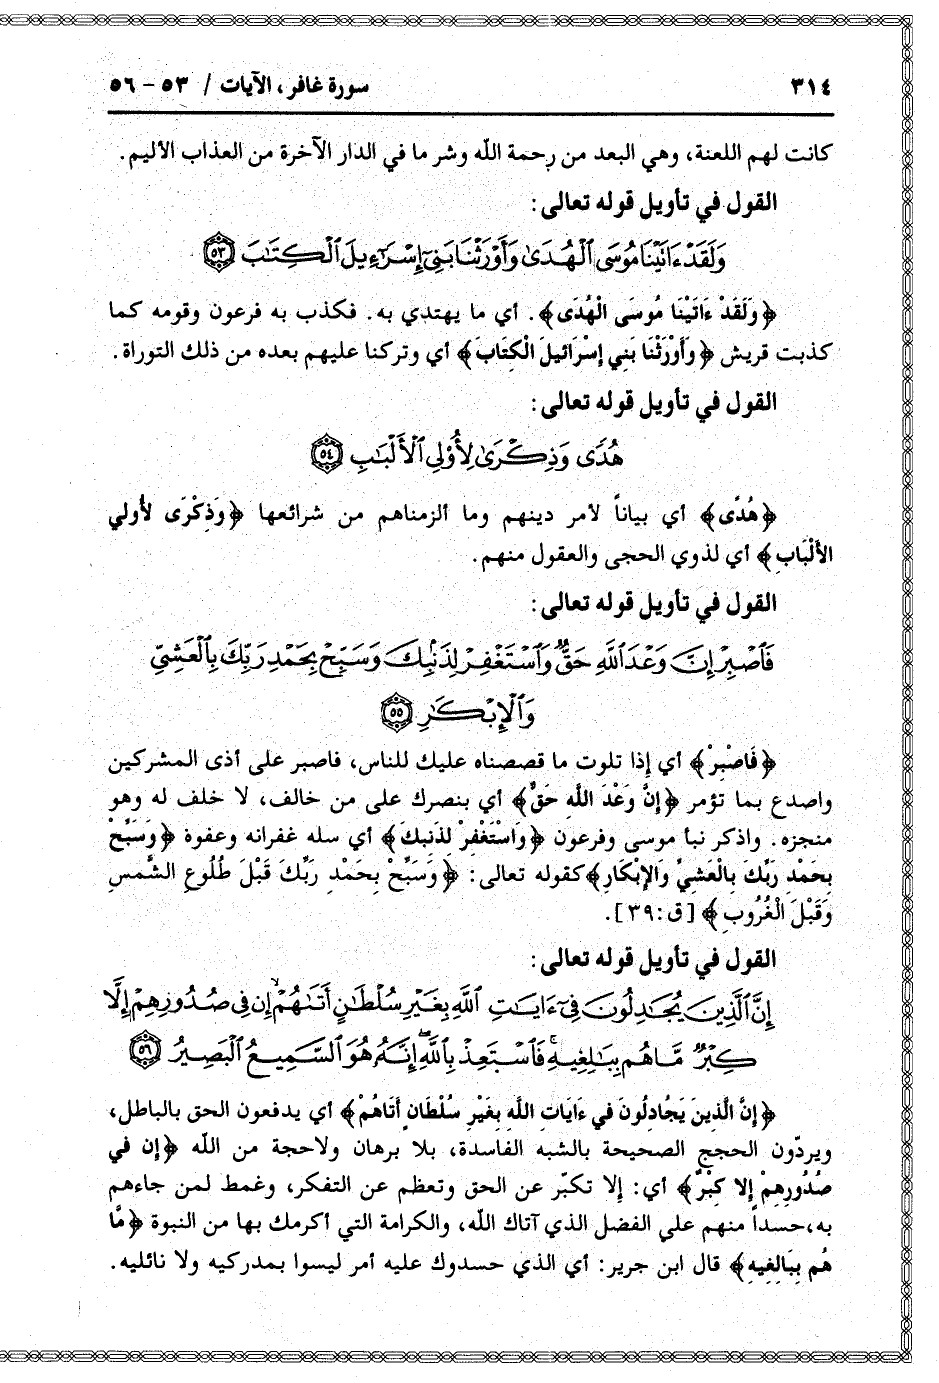 ٣١٤
سورة غافر، الآيات / ٥٣ – ٥٦
كانت لهم اللعنة، وهي البعد من رحمة اللّه وشر ما في الدار الآخرة من العذاب الأليم.
القول في تأويل قوله تعالى:
وَلَقَدْ ءَاتَيْنَا مُوسَى ٱلْهُدَىٰ وَأَوْرَثْنَا بَنِىٓ إِسْرَٰٓءِيلَ ٱلْكِتَٰبَ ٥٣
﴿وَلَقَدْ ءَاتَيْنَا مُوسَى الْهُدَى﴾. أي ما يهتدي به. فكذب به فرعون وقومه كما
كذبت قريش ﴿وَأَوْرَثْنَا بَنِي إِسْرَائيلَ الْكِتَابَ﴾ أي وتركنا عليهم بعده من ذلك التوراة.
القول في تأويل قوله تعالى:
هُدًى وَذِكْرَىٰ لِأُو۟لِى ٱلْأَلْبَٰبِ ٥٤
﴿هُدًى﴾ أي بياناً لأمر دينهم وما ألزمناهم من شرائعها ﴿وَذِكْرَى لأولي
الأَلْبَابِ﴾ أي لذوي الحجى والعقول منهم.
القول في تأويل قوله تعالى:
فَٱصْبِرْ إِنَّ وَعْدَ ٱللَّهِ حَقٌّ وَٱسْتَغْفِرْ لِذَنۢبِكَ وَسَبِّحْ بِحَمْدِ رَبِّكَ بِٱلْعَشِىِّ
وَٱلْإِبْكَٰرِ ٥٥
﴿فَاصْبِرْ﴾ أي إذا تلوت ما قصصناه عليك للناس، فاصبر على أذى المشركين
واصدع بما تؤمر ﴿إِنَّ وَعْدَ اللَّهِ حَقٌّ﴾ أي بنصرك على من خالف، لا خلف له وهو
منجزه. واذكر نبأ موسى وفرعون ﴿وَاسْتَغْفِرْ لذَنبِكَ﴾ أي سله غفرانه وعفوة ﴿وَسَبِّحْ
بِحَمْدِ رَبِّكَ بِالْعَشيِّ وَالإِبْكَارِ﴾كقوله تعالى: ﴿وَسَبِّحْ بِحَمْدِ رَبِّكَ قَبْلَ طُلُوعِ الشَّمْسِ
وَقَبْلَ الْغُرُوبِ﴾ [ق:٣٩].
القول في تأويل قوله تعالى:
إِنَّ ٱلَّذِينَ يُجَٰدِلُونَ فِىٓ ءَايَٰتِ ٱللَّهِ بِغَيْرِ سُلْطَٰنٍ أَتَىٰهُمْ ۙ إِن فِى صُدُورِهِمْ إِلَّا
كِبْرٌ مَّا هُم بِبَٰلِغِيهِ ۚ فَٱسْتَعِذْ بِٱللَّهِ ۖ إِنَّهُۥ هُوَ ٱلسَّمِيعُ ٱلْبَصِيرُ ٥٦
﴿إِنَّ الَّذينَ يَجُادِلُونَ في ءَايَاتِ اللَّهِ بِغَيْرِ سُلْطَانٍ أَتَاهُمْ﴾ أي يدفعون الحق بالباطل،
ويردّون الحجج الصحيحة بالشبه الفاسدة، بلا برهان ولاحجة من اللّه ﴿إن في
صُدُورِهِمْ إِلا كِبْرٌ﴾ أي: إلا تكبّر عن الحق وتعظم عن التفكر، وغمط لمن جاءهم
به،حسداً منهم على الفضل الذي آتاك اللّه، والكرامة التي أكرمك بها من النبوة ﴿مَّا
هُم بِبَالِغيهِ﴾ قال ابن جرير: أي الذي حسدوك عليه أمر ليسوا بمدركيه ولا نائليه.